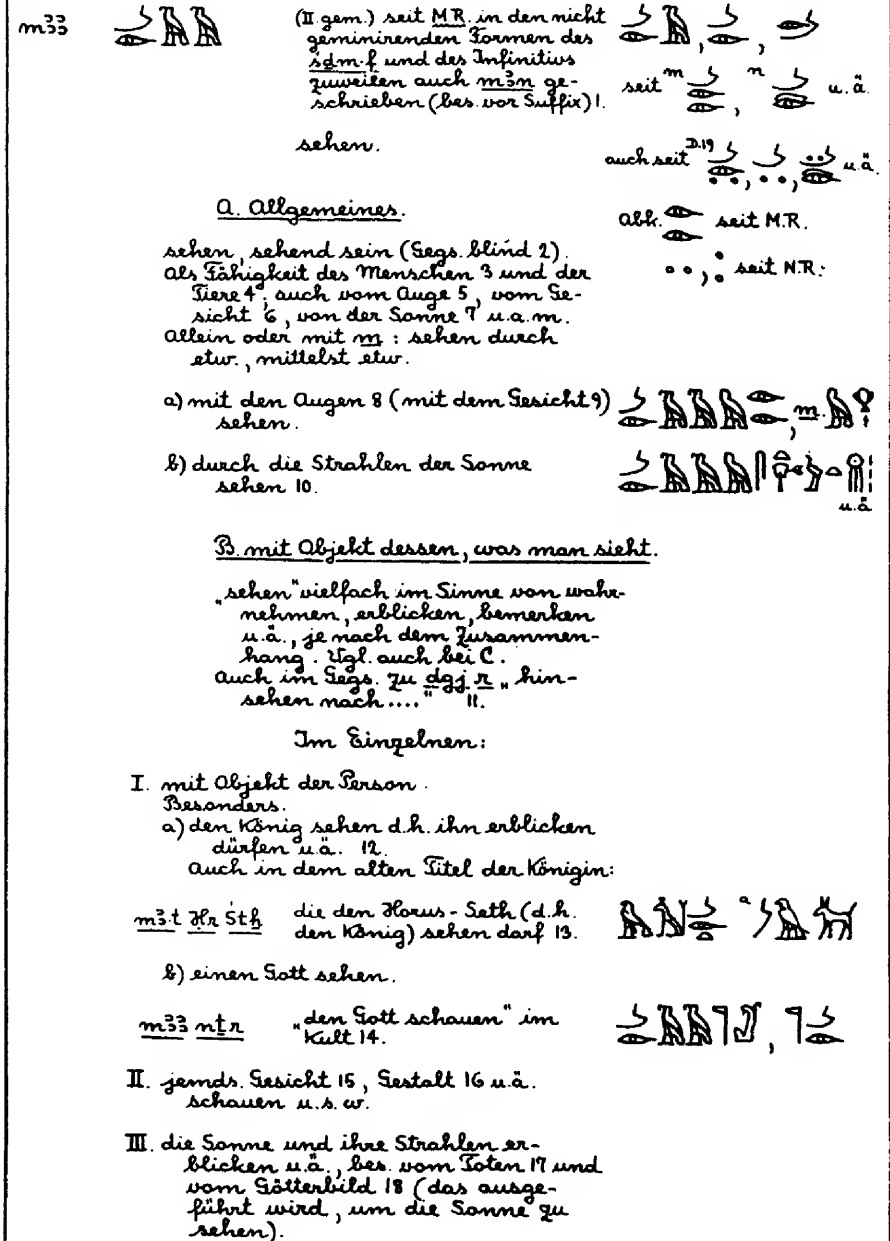 mꜣꜣ (II gem.) seit M.R. in den nicht
geminirenden Formen des
sḏm.f und des Infinitivs
zuweilen auch mꜣn ge-
schrieben (bes. vor Suffix) 1.
seit m , n u.ä.
sehen.
auch seit D.19 , , u.ä.
A. Allgemeines.
Abk. seit M.R.
, seit N.R.
sehen, sehend sein (Gegs. blind 2).
Als Fähigkeit des Menschen 3 und der
Tiere 4, auch vom Auge 5, vom Ge-
sicht 6, von der Sonne 7 u.a.m.
Allein oder mit m : sehen durch
etw., mittelst etw.
a) mit den Augen 8 (mit dem Gesicht 9) , m.
sehen.
b) durch die Strahlen der Sonne
sehen 10.
u.ä
B. mit Objekt dessen, was man sieht.
„sehen" vielfach im Sinne von wahr-
nehmen, erblicken, bemerken
u.ä., je nach dem Zusammen-
hang. Vgl. auch bei C.
Auch im Gegs. zu dgj r „hin-
sehen nach...." 11.
Im Einzelnen:
I. mit Objekt der Person.
Besonders.
a) den König sehen d.h. ihn erblicken
dürfen u.ä. 12.
Auch in dem alten Titel der Königin:
mꜣ.t Ḥr Śtḫ die den Horus-Seth (d.h.
den König) sehen darf 13.
b) einen Gott sehen.
mꜣꜣ nṯr „den Gott schauen" im
Kult 14.
II. jemds. Gesicht 15, Gestalt 16 u.ä.
schauen u.s.w.
III. die Sonne und ihre Strahlen er-
blicken u.ä., bes. vom Toten 17 und
vom Götterbild 18 (das ausge-
führt wird, um die Sonne zu
sehen).